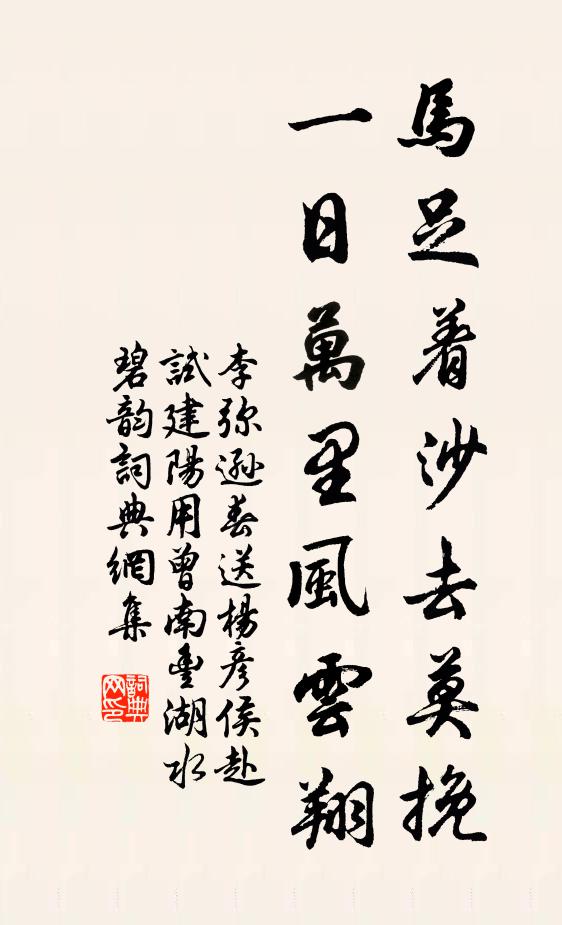 馬足着沙去莫挽
一日萬里風雲翔
李弥遜春送楊彦侯赴
試建陽用曾南豐湖水
碧韵詞典網集
詞典网印